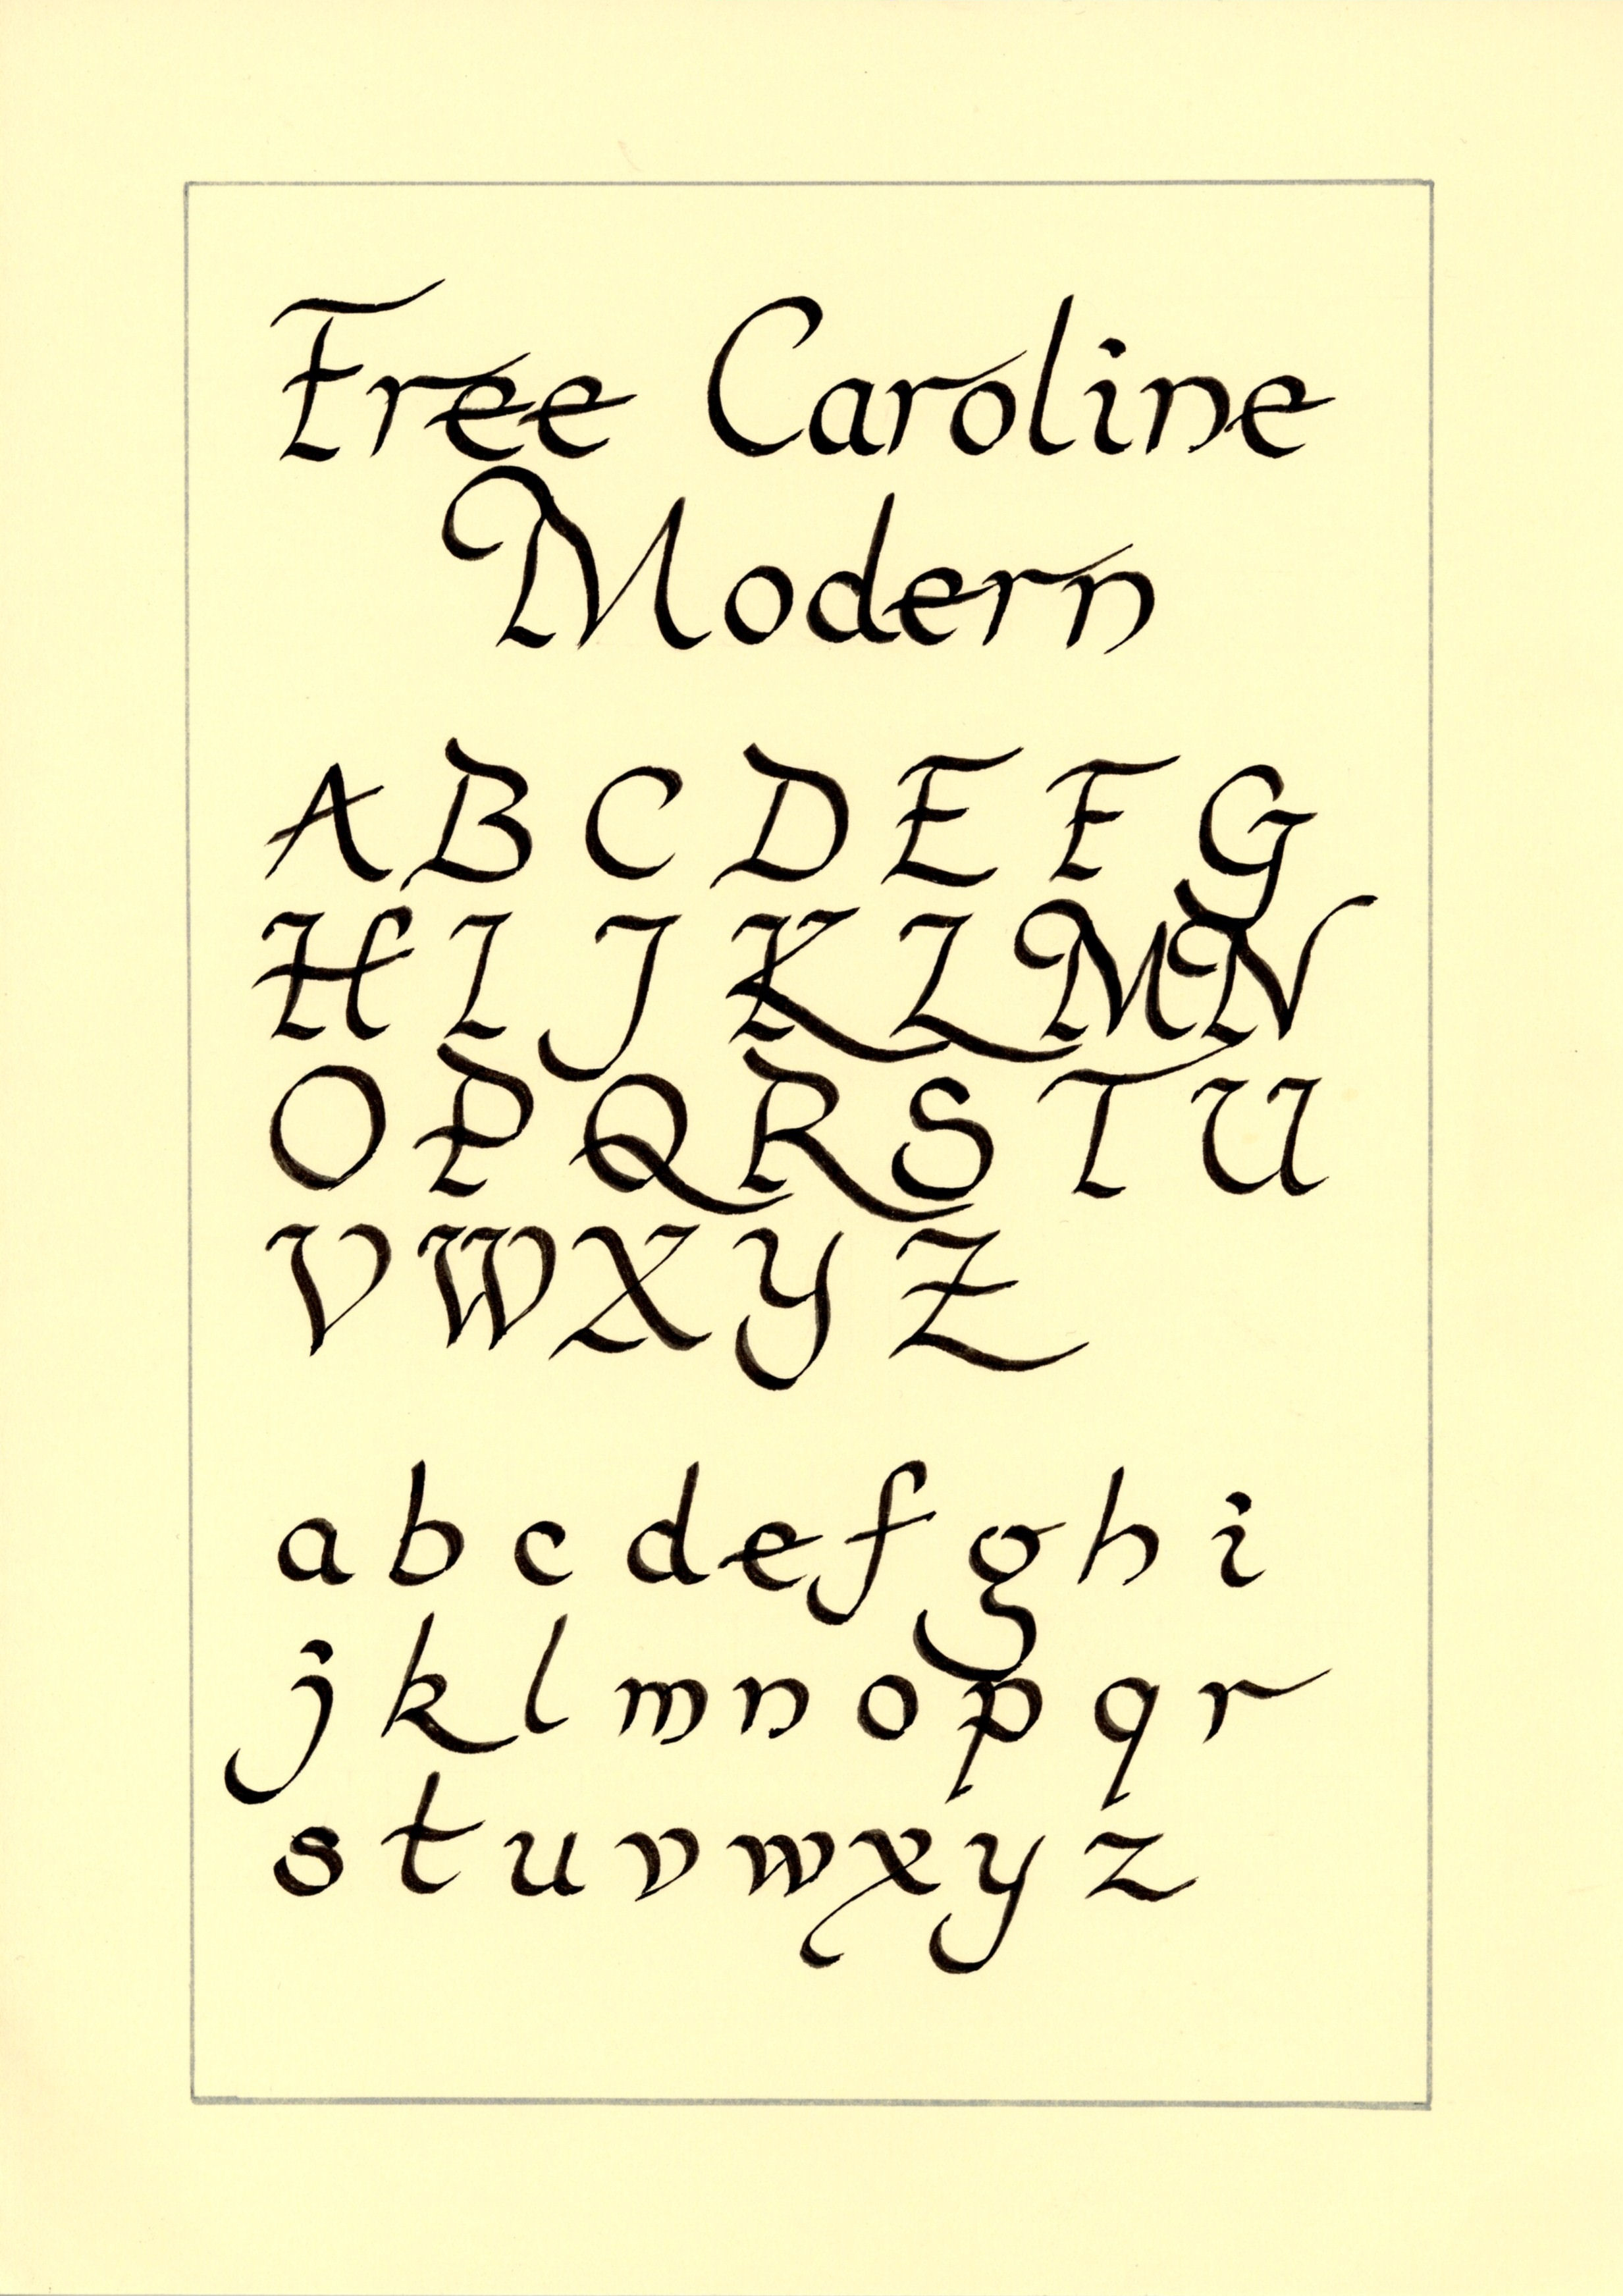 Free Caroline
Modern
A B C D E F G
H I J K L M N
O P Q R S T U
V W X Y Z
a b c d e f g h i
j k l m n o p q r
s t u v w x y z